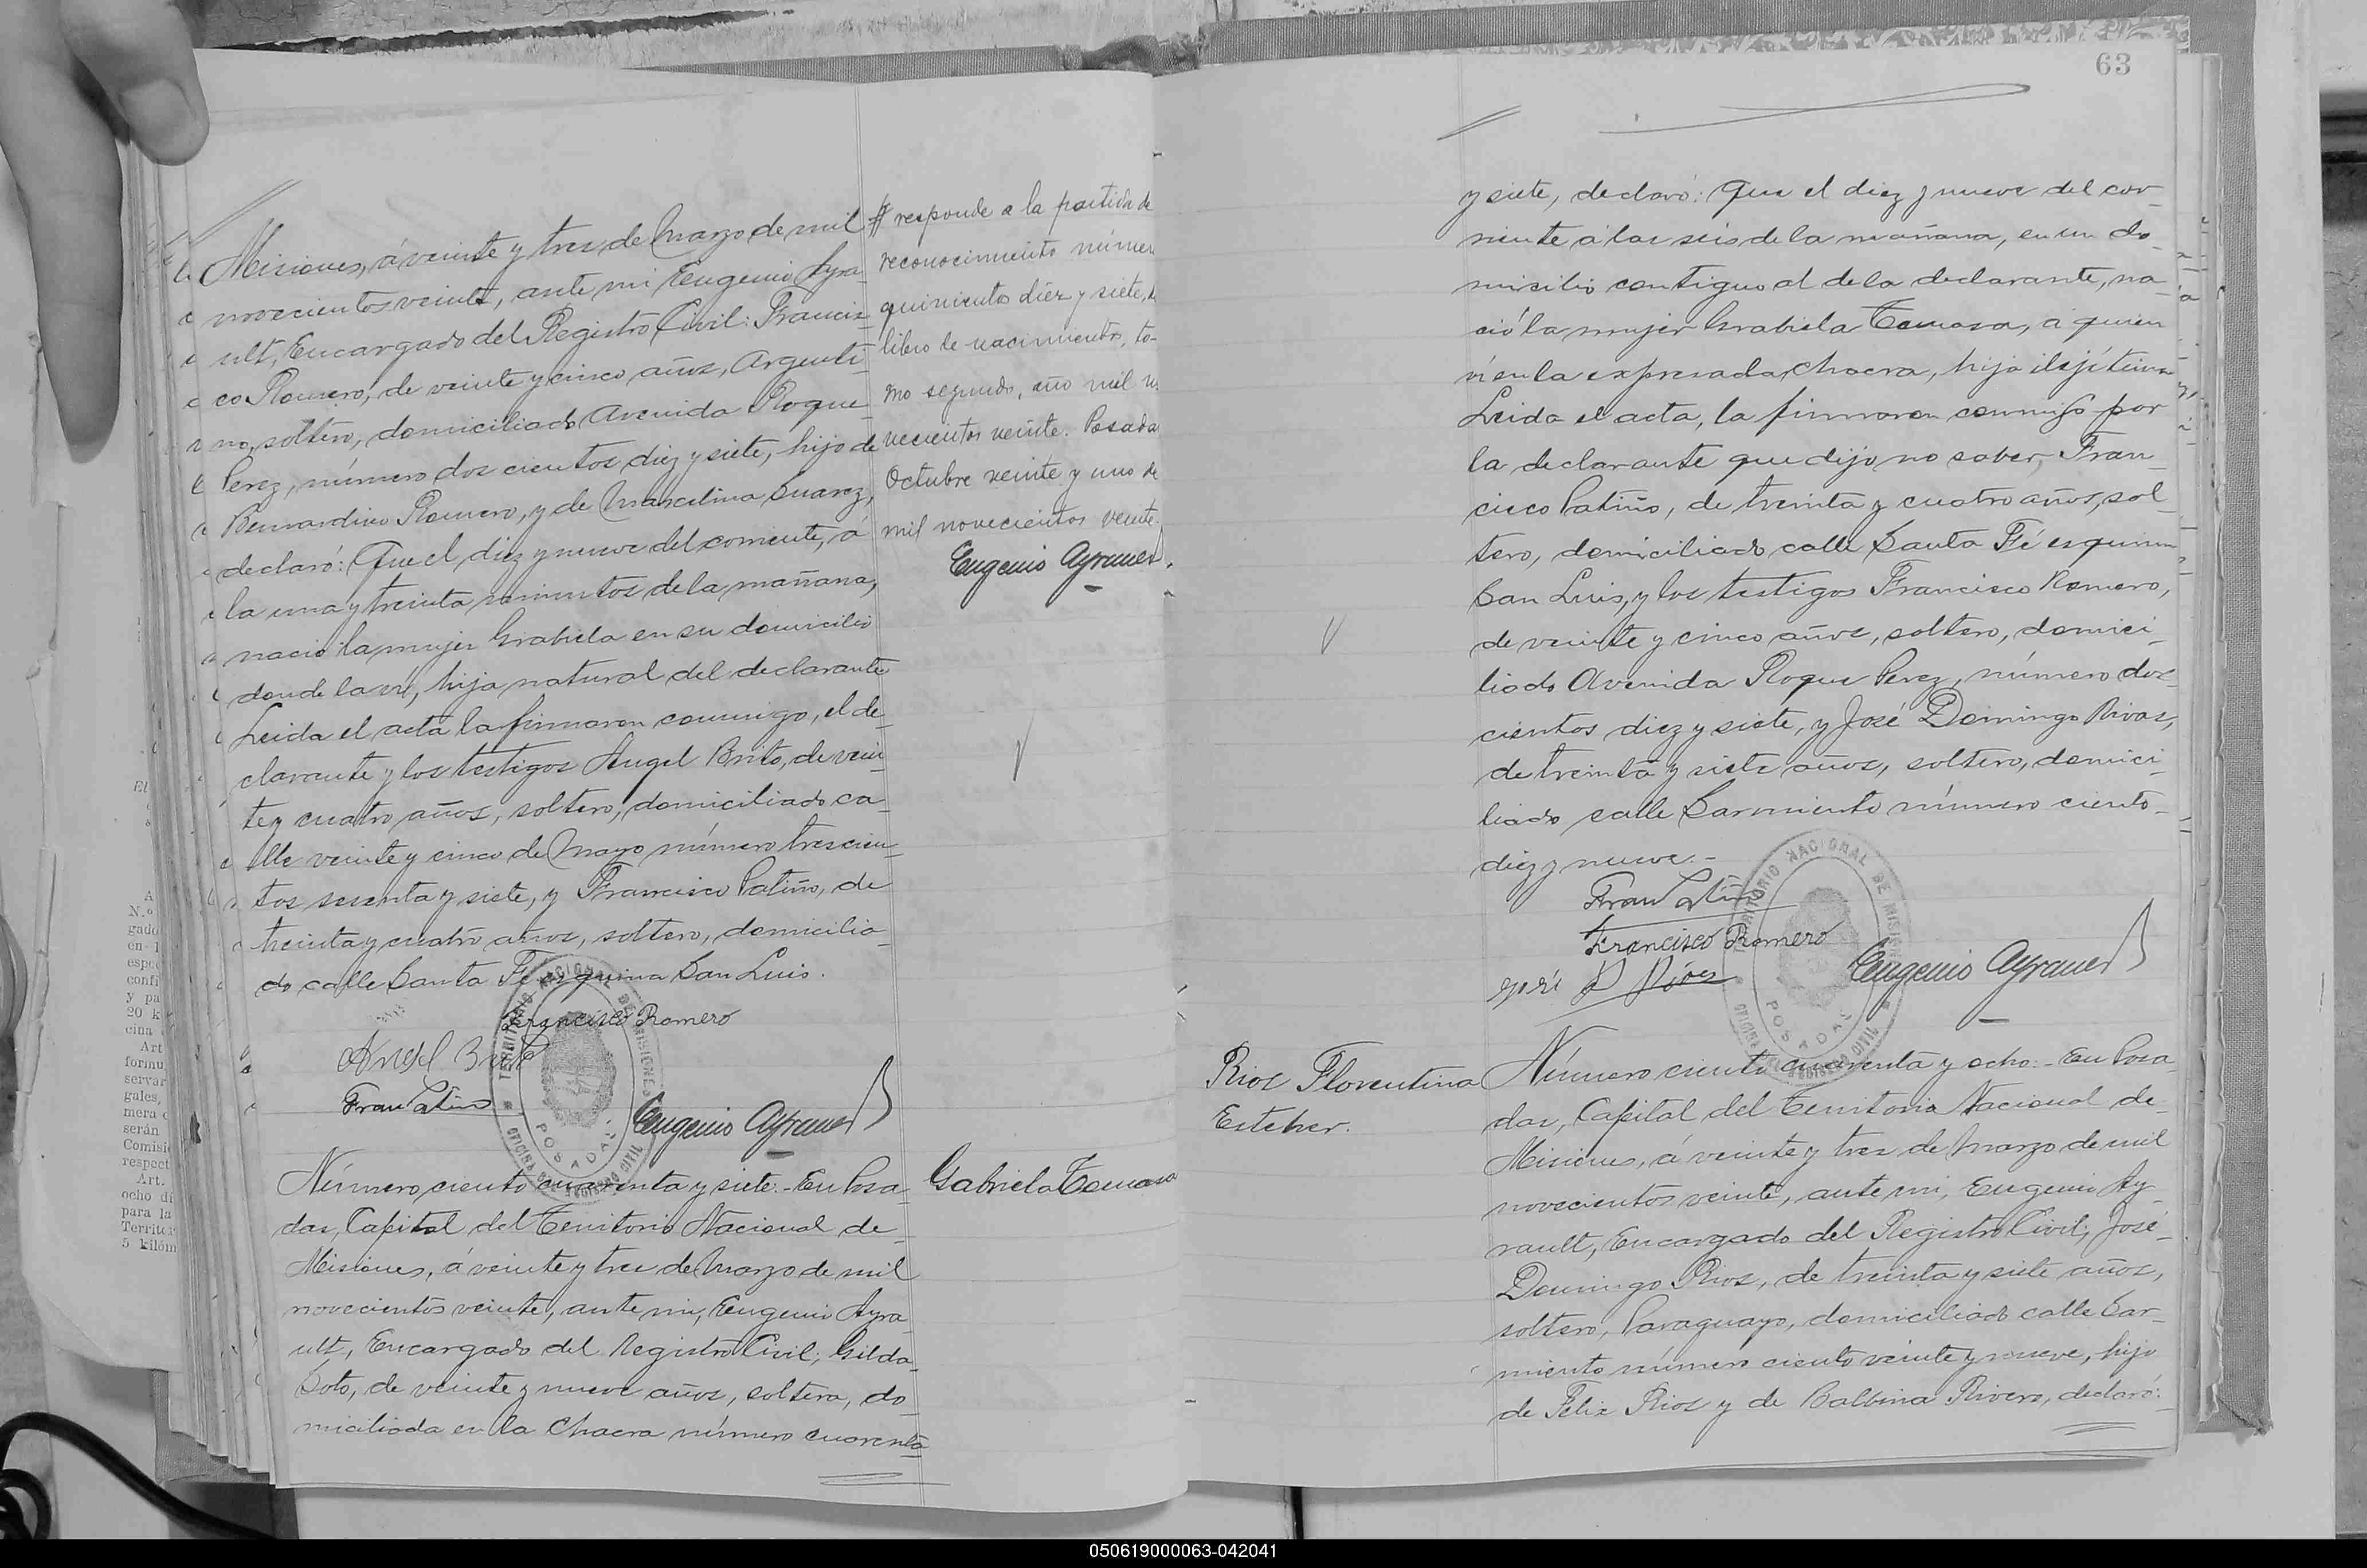 Misiones, á veinte y tres de Marzo de mil
novecientos veinte, ante mi Eugenio Ayra
ult, Encargado del Registro Civil: Francis
co Romero, de veinte y cinco años, Argenti
no, soltero, domiciliado Avenida Roque
Perez, número dos cientos diez y siete, hijo de
Bernardino Romero, y de Marcelina Suarez,
declaró: Que el diez y nueve del corriente, á
la una y treinta minutos de la mañana,
nació la mujer Grabiela en su domicilio
donde la ví, hija natural del declarante
Leida el acta la firmaron conmigo, el de
clarante y los testigos Angel Brito, de vein
te y cuatro años, soltero, domiciliado ca
lle veinte y cinco de Mayo número trescien
tos sesenta y siete, y Francisco Patiño, de
treinta y cuatro años, soltero, domicilia
do calle Santa Fé esquina San Luis.
Francisco Romero
Angel Brito
Fran Patiño
Eugenio Ayrault
TERRITORIO NACIONAL DE MISIONES
OFICINA DEL REGISTRO CIVIL
POSADAS
# responde a la partida de
reconocimiento númer
quinientos diez y siete,
libro de nacimientos, to-
mo segundo, año mil n
vecientos veinte. Posadas
Octubre veinte y uno de
mil novecientos veinte.
Eugenio Ayrault
Gabriela Tomasa
Número ciento cuarenta y siete.- En Posa
das, Capital del Territorio Nacional de
Misiones, á veinte y tres de Marzo de mil
novecientos veinte, ante mi, Eugenio Ayra
ult, Encargado del Registro Civil; Gilda
Soto, de veinte y nueve años, soltera, do
miciliada en la Chacra número cuarenta
63
y siete, declaró: Que el diez y nueve del cor
riente á las seis de la mañana, en un do
micilio contiguo al de la declarante, na
ció la mujer Grabiela Tomasa, á quien
ví en la expresada chacra, hija ilejítima
Leida el acta, la firmaron conmigo por
la declarante que dijo no saber, Fran
cisco Patiño, de treinta y cuatro años, sol
tero, domiciliado calle Santa Fé esquina
San Luis, y los testigos Francisco Romero,
de veinte y cinco años, soltero, domici
liado Avenida Roque Perez, número dos
cientos diez y siete, y José Domingo Rivas,
de treinta y siete años, soltero, domici
liado calle Sarmiento número ciento
diez y nueve.-
Fran Patiño
Francisco Romero
José D Ríos
Eugenio Ayrault
TERRITORIO NACIONAL DE MISIONES
OFICINA DEL REGISTRO CIVIL
POSADAS
Rios Florentina
Estcher.
Número ciento cuarenta y ocho.- En Posa
das, Capital del Territorio Nacional de
Misiones, á veinte y tres de Marzo de mil
novecientos veinte, ante mi, Eugenio Ay
rault, Encargado del Registro Civil; José
Domingo Rios, de treinta y siete años,
soltero, Paraguayo, domiciliado calle Sar
miento número ciento veinte y nueve, hijo
de Felix Rios y de Balbina Rivero, declaró:
050619000063-042041